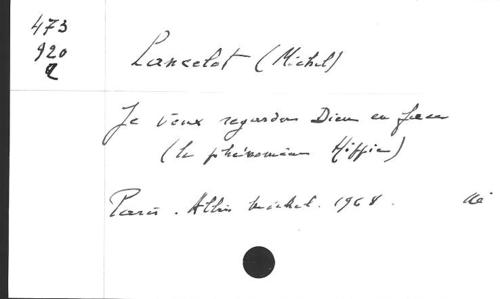 473
920
2
Lancelot (Michel)
Je veux regarder Dieu en face
(le phénomène Hippie)
Paris. Albin Michel. 1968.